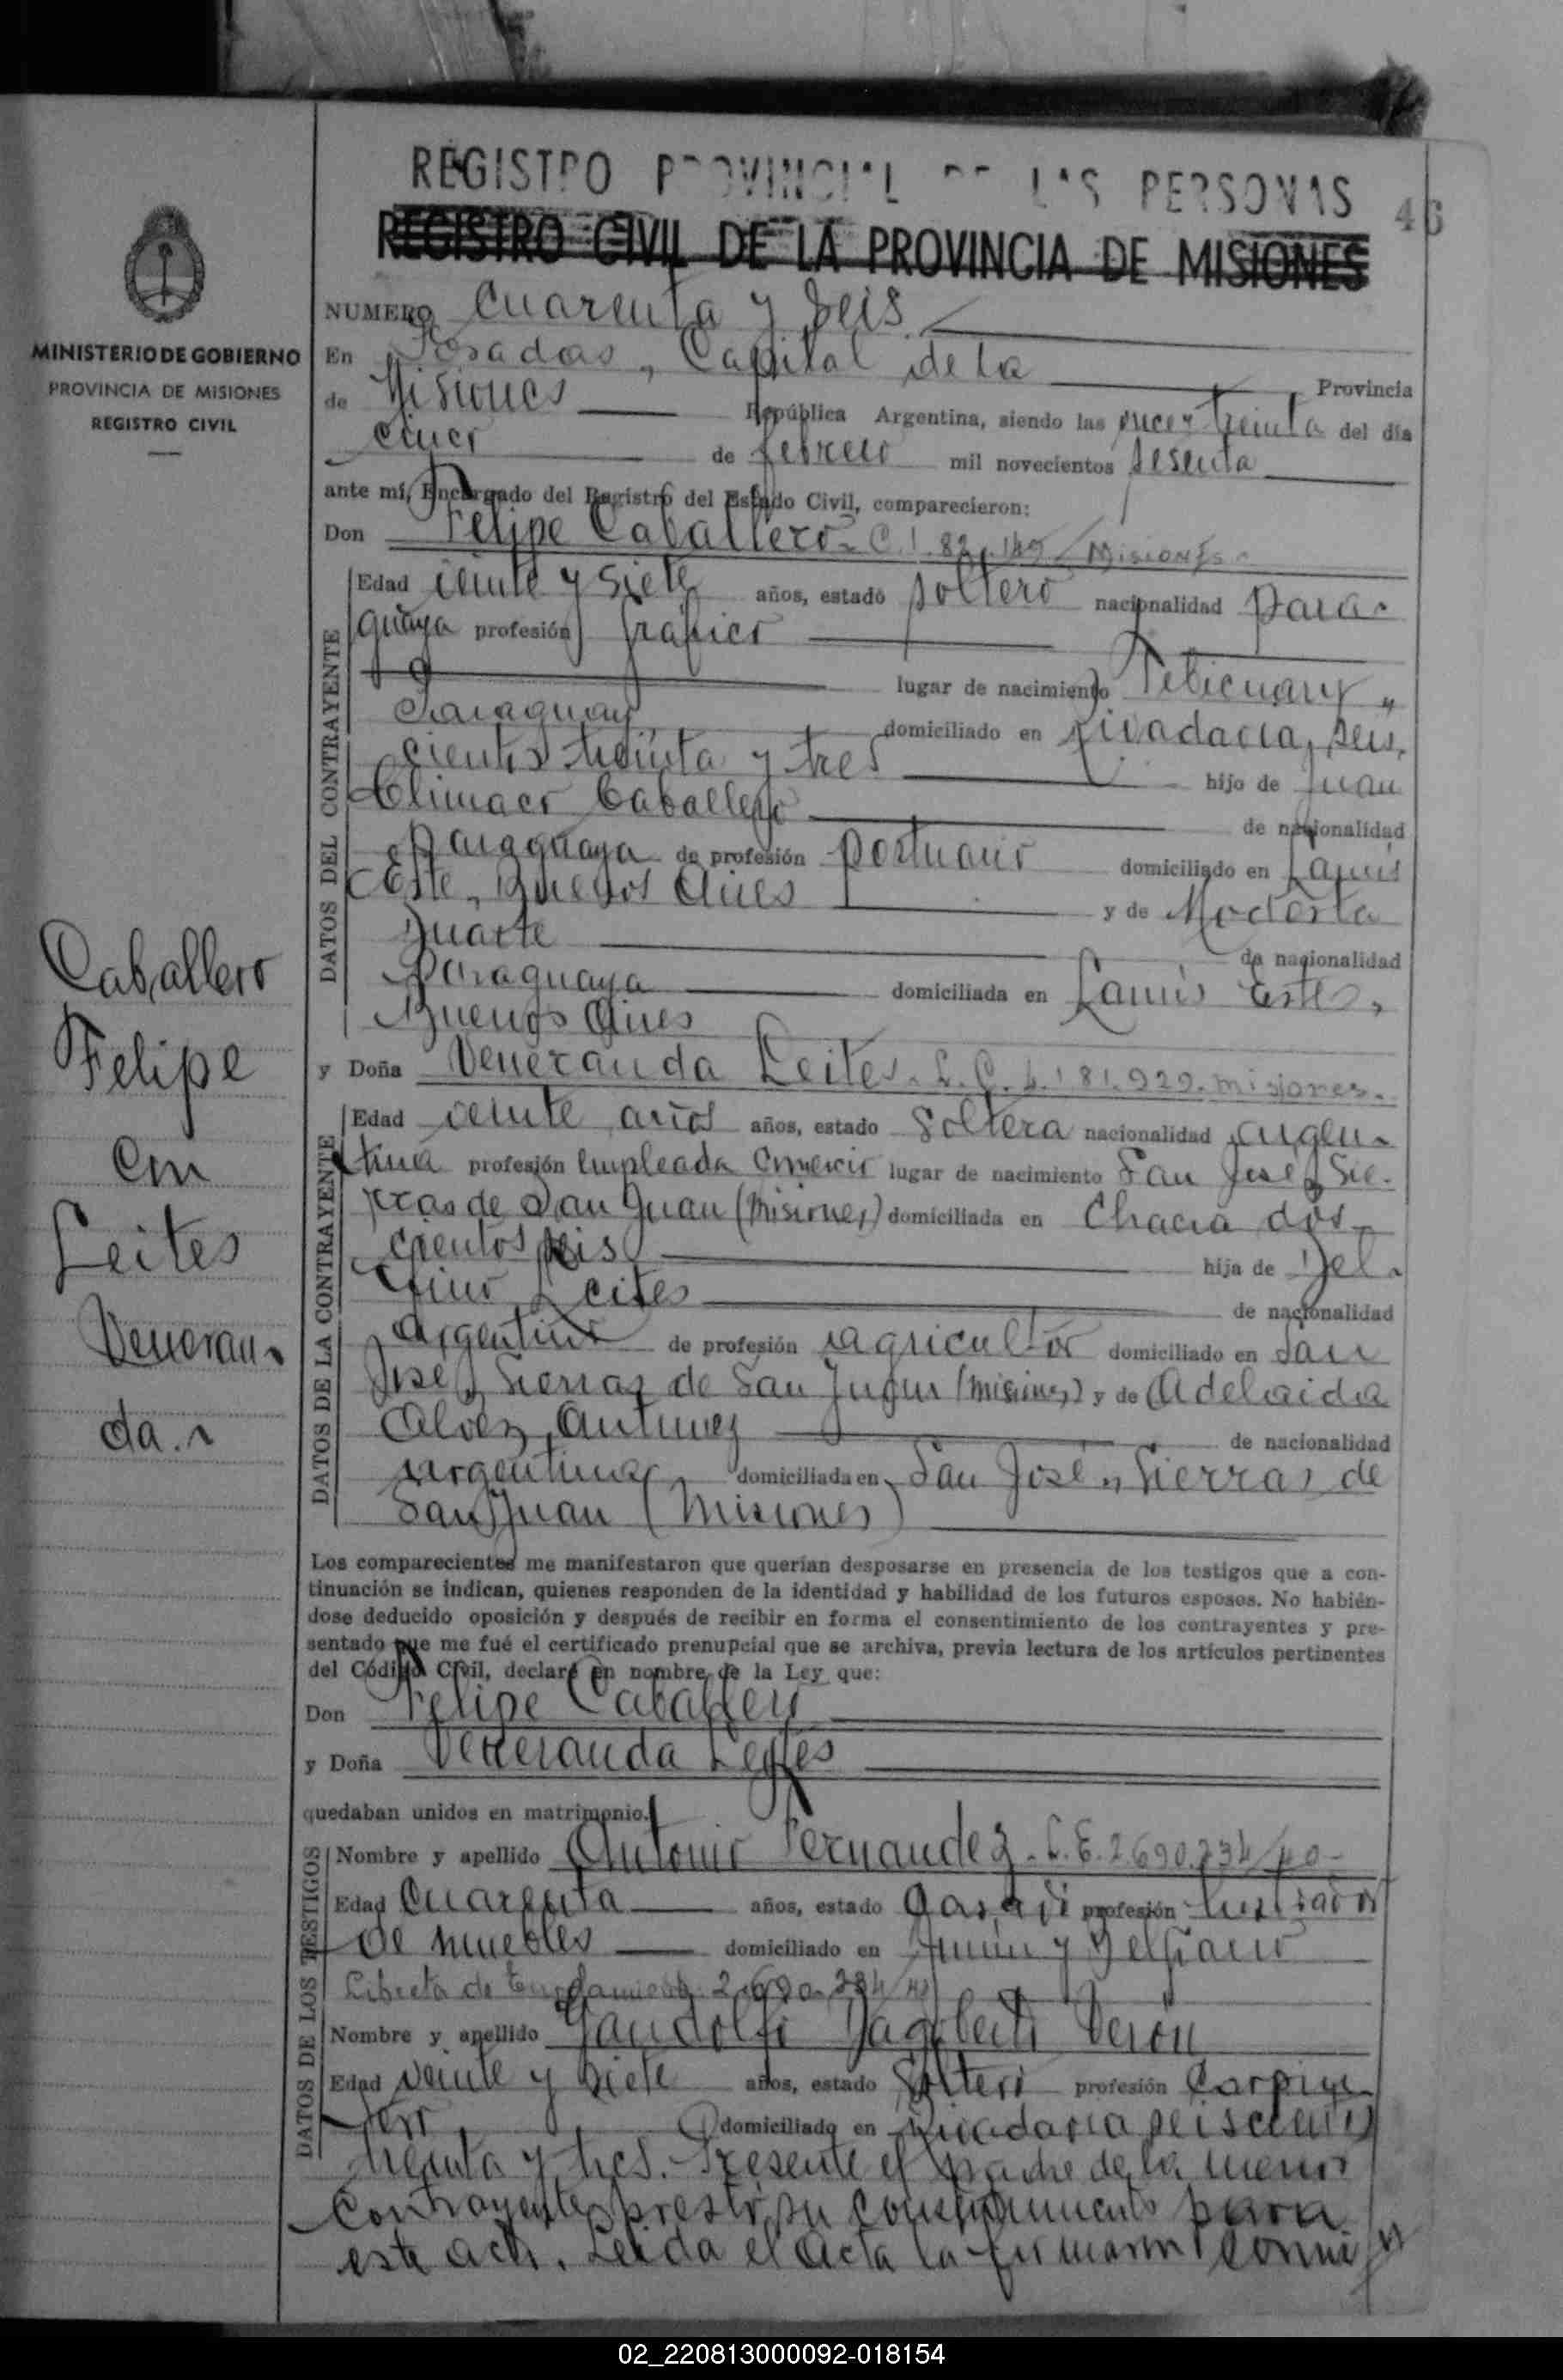 REGISTRO PROVINCIAL DE LAS PERSONAS
46
REGISTRO CIVIL DE LA PROVINCIA DE MISIONES
MINISTERIO DE GOBIERNO
PROVINCIA DE MISIONES
REGISTRO CIVIL
Caballero
Felipe
con
Leites
Veneran-
da.-
NUMERO Cuarenta y Seis
En Posadas, Capital de la Provincia
de Misiones República Argentina, siendo las once y treinta del día
cinco de febrero mil novecientos sesenta
ante mí, Encargado del Registro del Estado Civil, comparecieron:
Don Felipe Caballero - C.I. 82.149 - Misiones -
DATOS DEL CONTRAYENTE
Edad veinte y siete años, estado soltero nacionalidad para-
guaya profesión gráfico
lugar de nacimiento Tebicuary,
Paraguay domiciliado en Rivadavia, seis-
cientos treinta y tres hijo de Juan
Climaco Caballero de nacionalidad
paraguaya de profesión portuario domiciliado en Lanús
Este, Buenos Aires y de Modesta
Duarte de nacionalidad
Paraguaya domiciliada en Lanús Este,
Buenos Aires
y Doña Veneranda Leites. L.C. 4.181.929. misiones.
DATOS DE LA CONTRAYENTE
Edad veinte años años, estado Soltera nacionalidad argen-
tina profesión empleada comercio lugar de nacimiento San José, Sie-
rras de San Juan (Misiones) domiciliada en Chacra dos-
cientos seis hija de Del-
fino Leites de nacionalidad
argentino de profesión agricultor domiciliado en San
José, Sierras de San Juan (misiones) y de Adelaida
Alvez Antunez de nacionalidad
argentina, domiciliada en San José, Sierras de
San Juan (Misiones)
Los comparecientes me manifestaron que querían desposarse en presencia de los testigos que a con-
tinuación se indican, quienes responden de la identidad y habilidad de los futuros esposos. No habién-
dose deducido oposición y después de recibir en forma el consentimiento de los contrayentes y pre-
sentado que me fué el certificado prenupcial que se archiva, previa lectura de los artículos pertinentes
del Código Civil, declaré en nombre de la Ley que:
Don Felipe Caballero
y Doña Veneranda Leites
quedaban unidos en matrimonio.
DATOS DE LOS TESTIGOS
Nombre y apellido Antonio Fernandez. L.E. 2.690.234/40-
Edad Cuarenta años, estado Casado profesión lustrador
de muebles domiciliado en Junín y Belgrano
Libreta de Enrolamiento 2.690.234/40
Nombre y apellido Gandolfo Dagoberto Verón
Edad veinte y siete años, estado Soltero profesión Carpin-
tero domiciliado en Rivadavia seiscientos
treinta y tres. Presente el padre de la menor
contrayente prestó su consentimiento para
este acto. Leída el acta la firmaron conmi
02_220813000092-018154